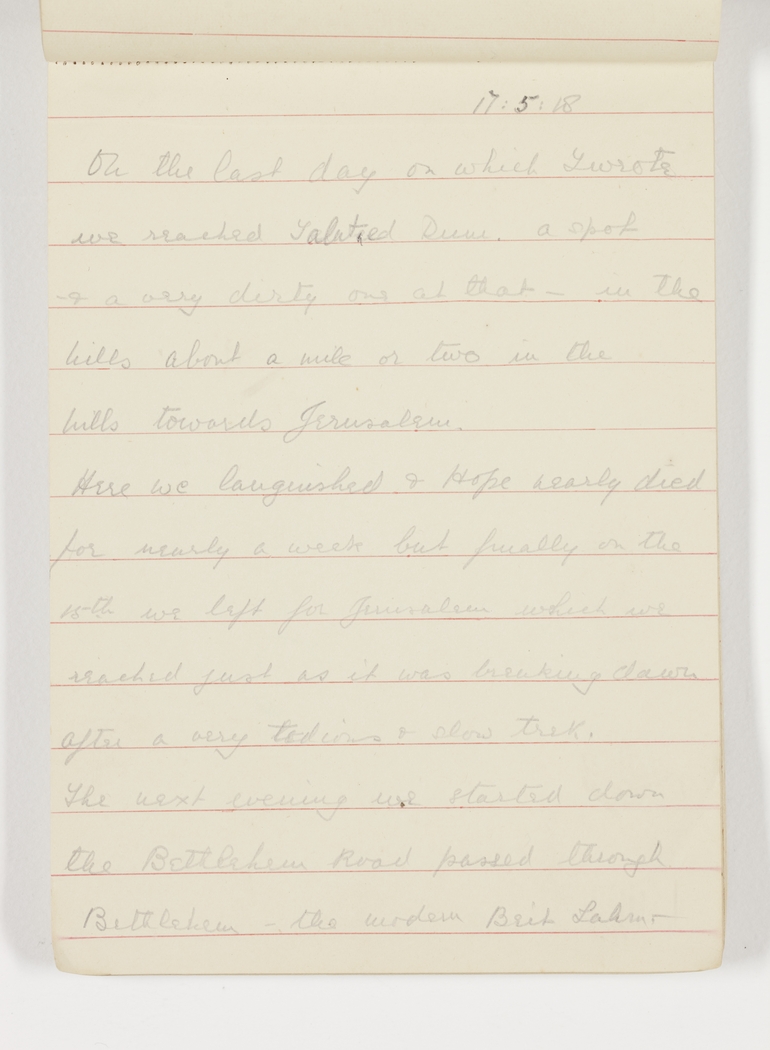 17:5:18
On the last day on which I wrote
we reached Talaat ed Dum. a spot
- & a very dirty one at that - in the
hills about a mile or two in the
hills towards Jerusalem.
Here we languished & Hope nearly died
for nearly a week but finally on the
15th we left for Jerusalem which we
reached just as it was breaking dawn
after a very tedious & slow trek.
The next evening we started down
the Bethlehem Road passed through
Bethlehem - the modern Beit Lahm -